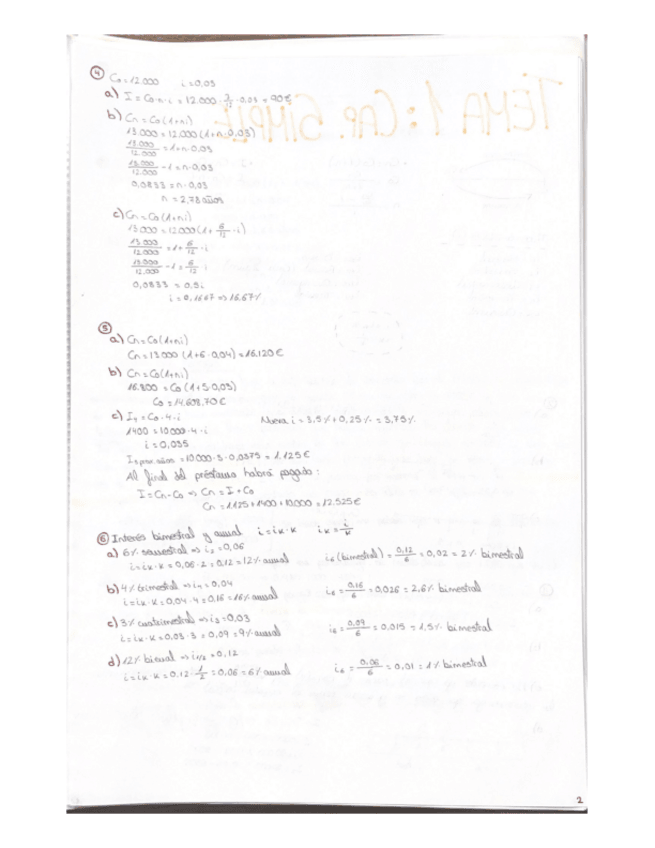 4 C₀ = 12.000 i = 0,03
a) I = C₀·n·i = 12.000 · 3/12 · 0.03 = 90€
b) Cn = C₀(1+ni)
13.000 = 12.000(1+n·0,03)
13.000/12.000 = 1+n·0.03
13.000/12.000 - 1 = n·0,03
0,0833 = n·0,03
n = 2,78 años
c) Cn = C₀(1+ni)
13.000 = 12.000(1+ 6/12 ·i)
13.000/12.000 = 1+ 6/12 ·i
13.000/12.000 - 1 = 6/12 ·i
0,0833 = 0,5i
i = 0,1667 ⇒ 16.67%
5
a) Cn = C₀(1+ni)
Cn = 13.000 (1+6·0,04) = 16.120€
b) Cn = C₀(1+ni)
16.800 = C₀(1+5·0,03)
C₀ = 14.608,70€
c) I₄ = C₀·4·i Nueva i = 3,5% + 0,25% = 3,75%
1400 = 10.000·4·i
i = 0,035
I 3 prox. años = 10.000·3·0,0375 = 1.125€
Al final del préstamo habrá pagado:
I = Cn-C₀ ⇒ Cn = I + C₀
Cn = 1125+1400+10.000 = 12.525€
6 Interés bimestral y anual i = iₖ·k iₖ = i/k
a) 6% semestral ⇒ i₂ = 0,06
i = iₖ·k = 0,06·2 = 0,12 = 12% anual i₆ (bimestral) = 0,12/6 = 0,02 = 2% bimestral
b) 4% trimestral ⇒ i₄ = 0,04
i = iₖ·k = 0,04·4 = 0,16 = 16% anual i₆ = 0,16/6 = 0,026 = 2.6% bimestral
c) 3% cuatrimestral ⇒ i₃ = 0,03
i = iₖ·k = 0,03·3 = 0,09 = 9% anual i₆ = 0,09/6 = 0,015 = 1,5% bimestral
d) 12% bienal ⇒ i₁/₂ = 0,12
i = iₖ·k = 0,12 · 1/2 = 0,06 = 6% anual i₆ = 0,06/6 = 0,01 = 1% bimestral
TEMA 1: CAP. SIMPLE
2